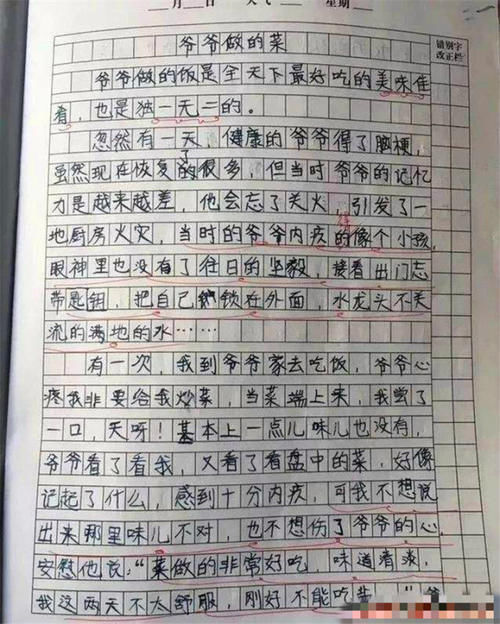 月 日 天气 星期
错别字
改正栏
爷爷做的菜
爷爷做的饭是全天下最好吃的美味佳
肴，也是独一无二的。
忽然有一天，健康的爷爷得了脑梗，
虽然现在恢复了的很多，但当时爷爷的记忆
力是越来越差，他会忘了关火，引发了一
地厨房火灾，当时的爷爷内疚的像个小孩，
眼神里也没有了往日的坚毅，接着出门忘
带匙钥，把自己锁在外面，水龙头不关
流的满地的水……
有一次，我到爷爷家去吃饭，爷爷心
疼我非要给我炒菜，当菜端上来，我尝了
一口，天呀！基本上一点儿味儿也没有，
爷爷看了看我，又看了看盘中的菜，好像
记起了什么，感到十分内疚，可我不想说
出来那里味儿不对，也不想伤了爷爷的心，
安慰他说：“菜做的非常好吃，味道清淡，
我这两天不太舒服，刚好不能吃